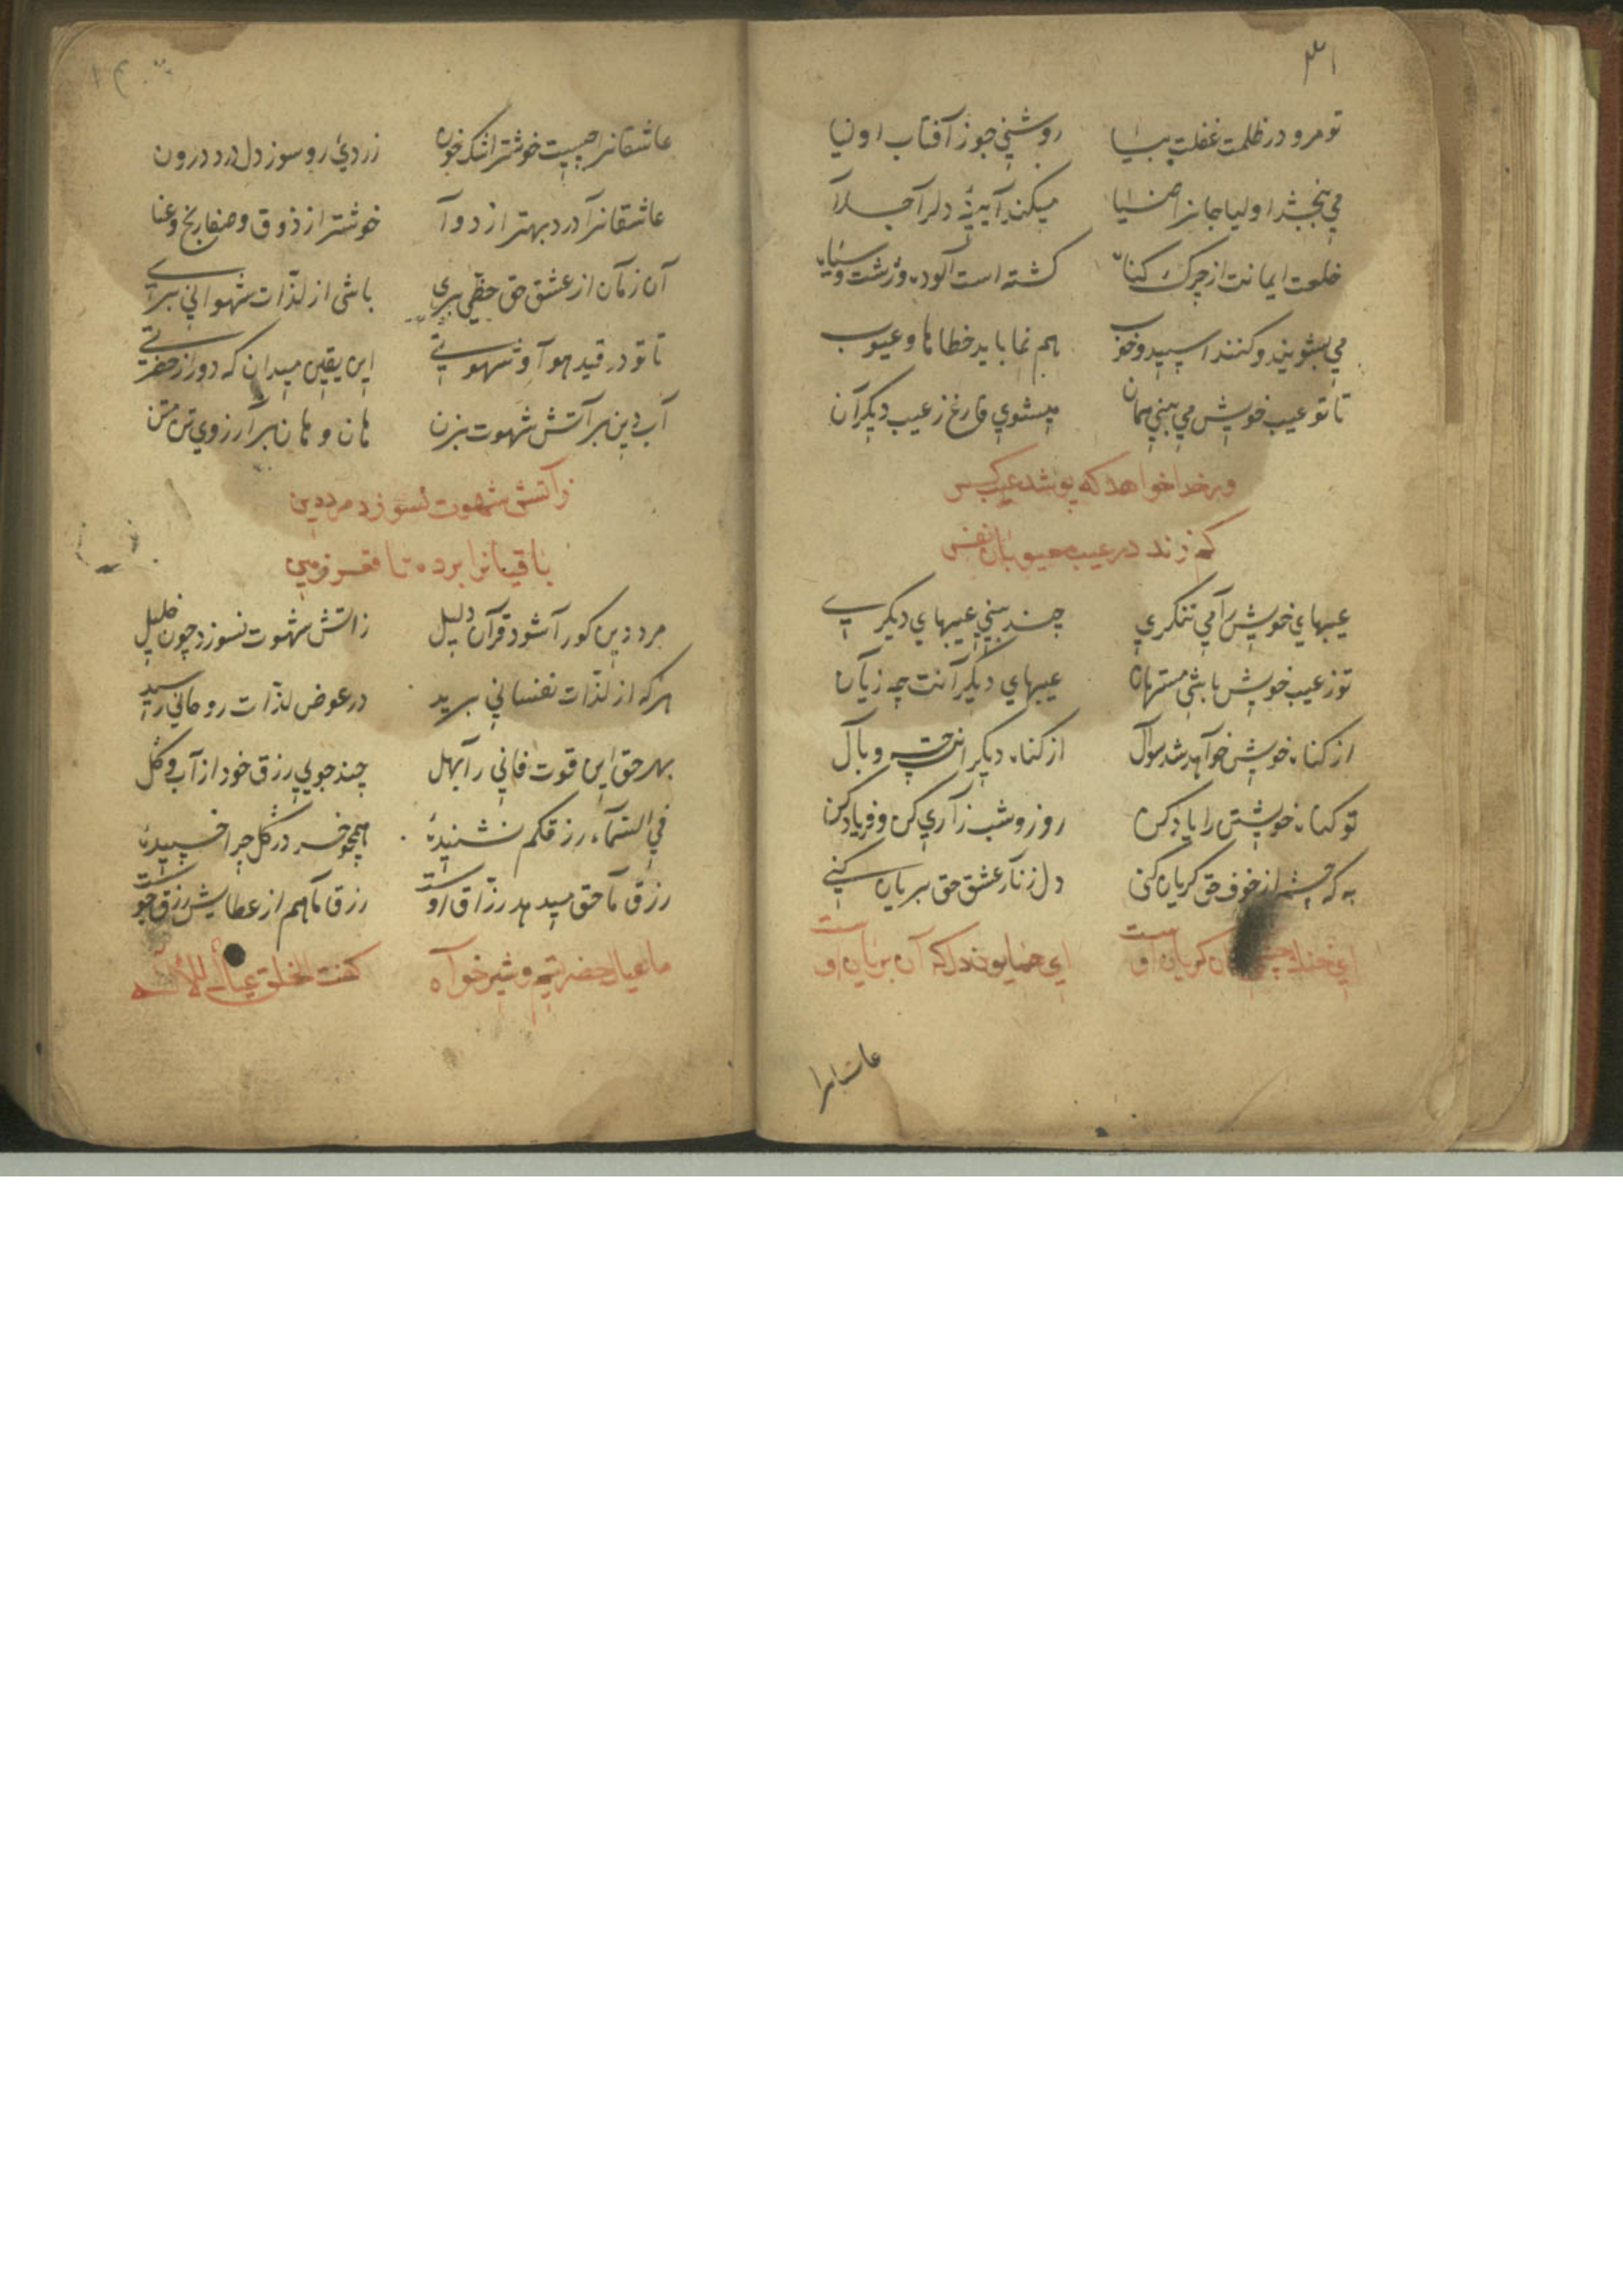 ۳۱
تو مرو در ظلمت غفلت بیا روشنی جو ز آفتاب اولیا
می بخشد اولیا جانرا ضیا میکند آیینه دلرا جلا
خلعت ایمانت از چرک کناه کشته است آلوده و زشت و سیاه
می بشویند و کنند اسپید و خوب هم نماباید خطاها و عیوب
تا تو عیب خویش می بینی همان میشوی فارغ ز عیب دیکران
ور خدا خواهد که پوشد عیب کس
کم زند در عیب معیوبان نفس
عیبهای خویش را می ننکری چند بینی عیبهای دیکری
تو ز عیب خویش باشی مستهان عیبهای دیکرانت چه زیان
از کناه خویش خواهد شد سوال از کناه دیکرانت چه وبال
تو کناه خویشتن را یاد کن روز و شب زاری کن و فریاد کن
به که چشم از خوف حق کریان کنی دل ز نار عشق حق بریان کنی
ای خنک کان کریان اوست ای همایون دل که آن بریان اوست
عاشقانرا
عاشقانرا چیست خوشتر اشک خون زردی رو سوز دل درد درون
عاشقانرا درد بهتر از دوا خوشتر از ذوق و صفا رنج و عنا
آن زمان از عشق حق حظی بری باشی از لذات شهوانی بری
تا تو در قید هوا و شهوتی این یقین میدان که دور از حضرتی
آب دین بر آتش شهوت بزن هان و هان بر آرزوی تن متن
ز آتش شهوت نسوزد مرد دین
باقیانرا برده تا قعر زمین
مرد دین کورا شود قرآن دلیل ز آتش شهوت نسوزد چون خلیل
هرکه از لذات نفسانی برید در عوض لذات روحانی رسید
بهر حق این قوت فانی را بهل چند جویی رزق خود از آب و کل
فی السماء رزقکم نشنیدهٔ همچو خر در کل چرا خسپیدهٔ
رزق ما حق میدهد رزاق اوست رزق ما هم از عطایش رزق جوست
ما عیال حضرتیم و شیرخواه کفت الخلق عیال للاله